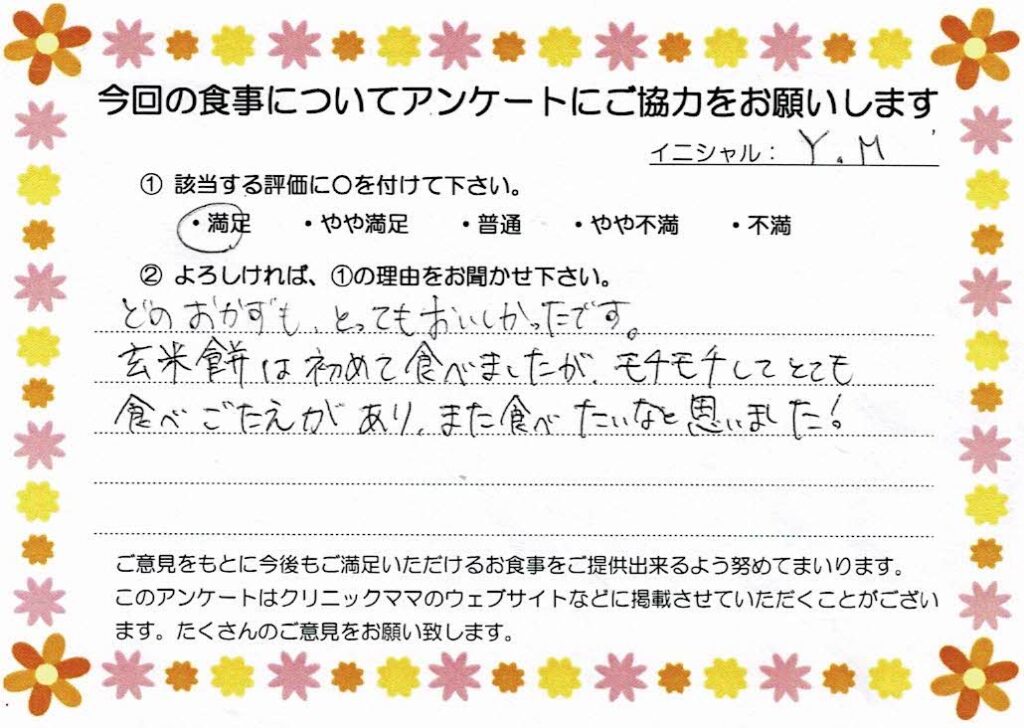 今回の食事についてアンケートにご協力をお願いします
イニシャル： Y.M
① 該当する評価に〇を付けて下さい。
・満足 ・やや満足 ・普通 ・やや不満 ・不満
② よろしければ、①の理由をお聞かせ下さい。
どのおかずも、とってもおいしかったです。
玄米餅は初めて食べましたが、モチモチしてとても
食べごたえがあり、また食べたいなと思いました！
ご意見をもとに今後もご満足いただけるお食事をご提供出来るよう努めてまいります。
このアンケートはクリニックママのウェブサイトなどに掲載させていただくことがござい
ます。たくさんのご意見をお願い致します。